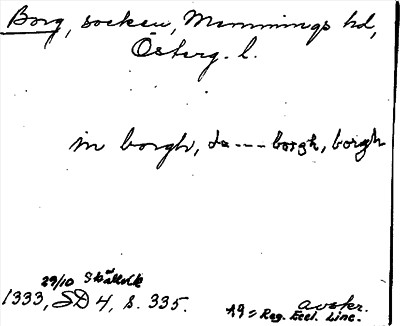 Borg, socken, Memmings hd,
Österg. l.
in borgh, de --- borgh, borgh
29/10
1333, SD 4, s. 335.
avskr.
A9 = Reg. Eccl. Linc.